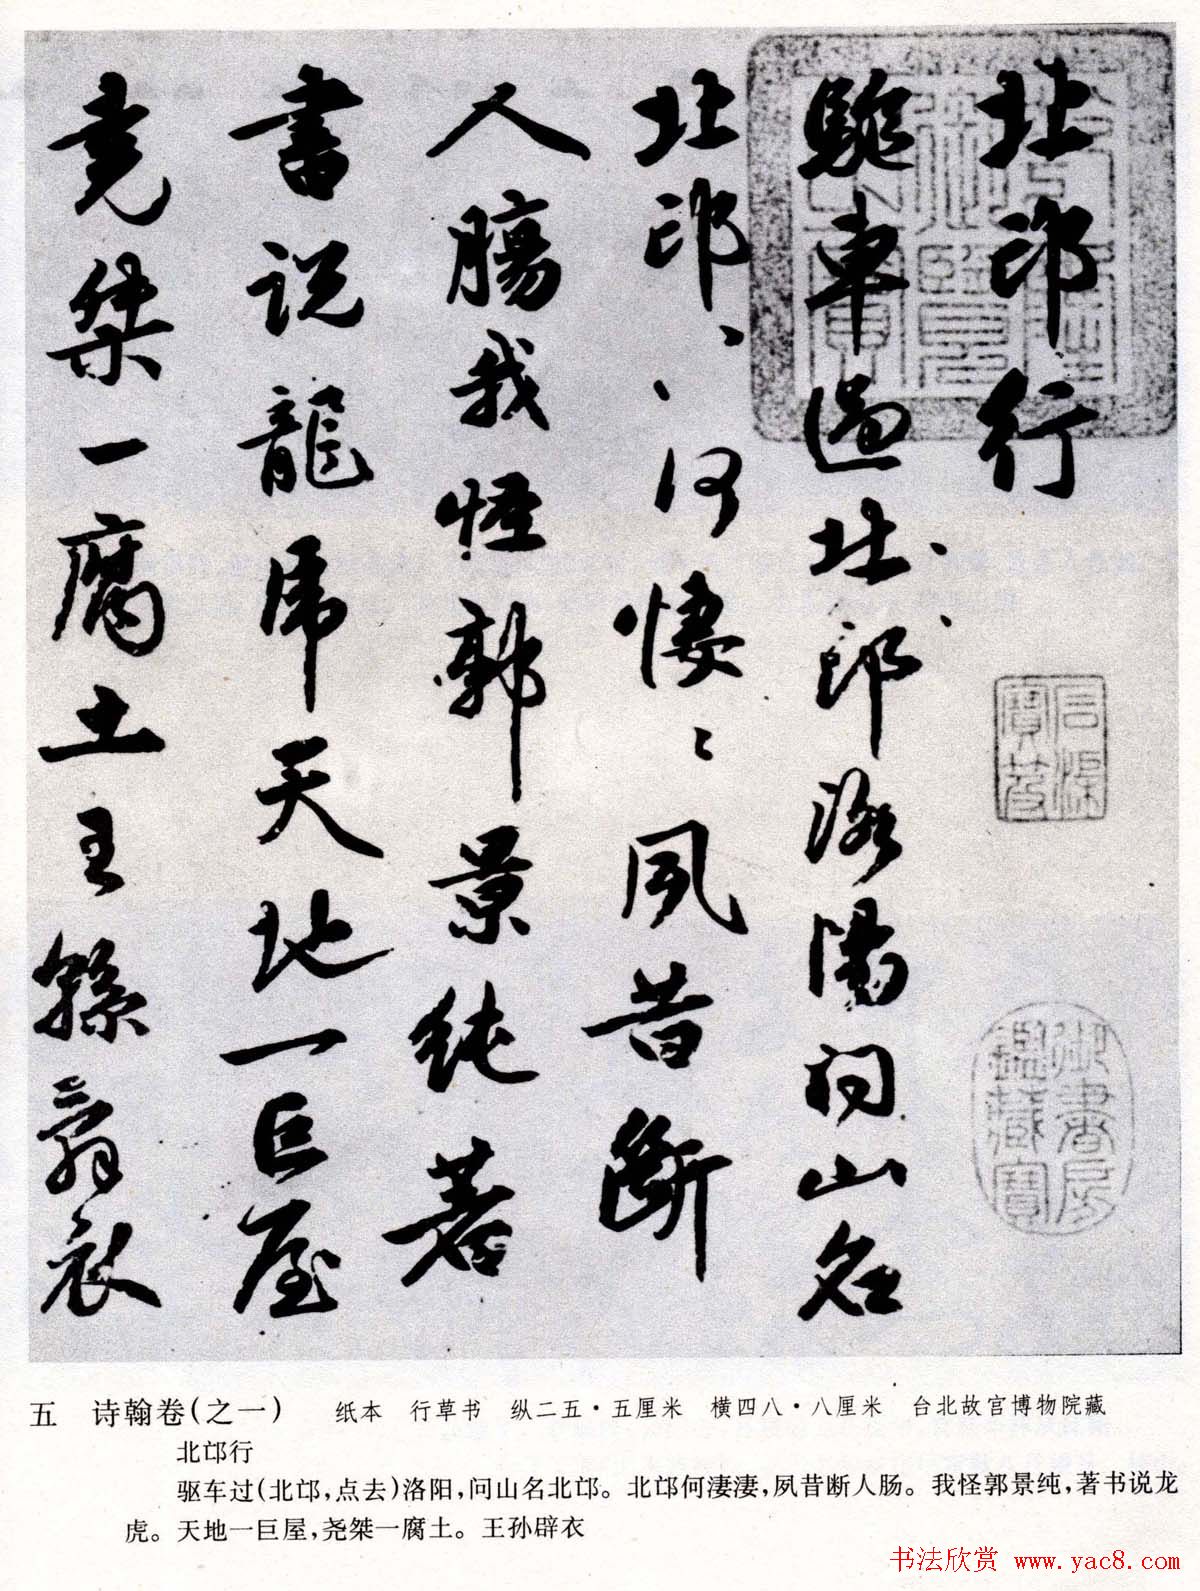 北邙行
驅車過北邙洛陽問山名
北邙、、何悽〻夙昔斷
人腸我怪郭景純著
書説龍虎天地一巨屋
堯桀一腐土王孫辟衣
御書房鑑藏寶
五 诗翰卷(之一) 纸本 行草书 纵二五·五厘米 横四八·八厘米 台北故宫博物院藏
北邙行
驱车过(北邙,点去)洛阳,问山名北邙。北邙何淒淒,夙昔断人肠。我怪郭景纯,著书说龙
虎。天地一巨屋,尧桀一腐土。王孙辟衣
书法欣赏 www.yac8.com